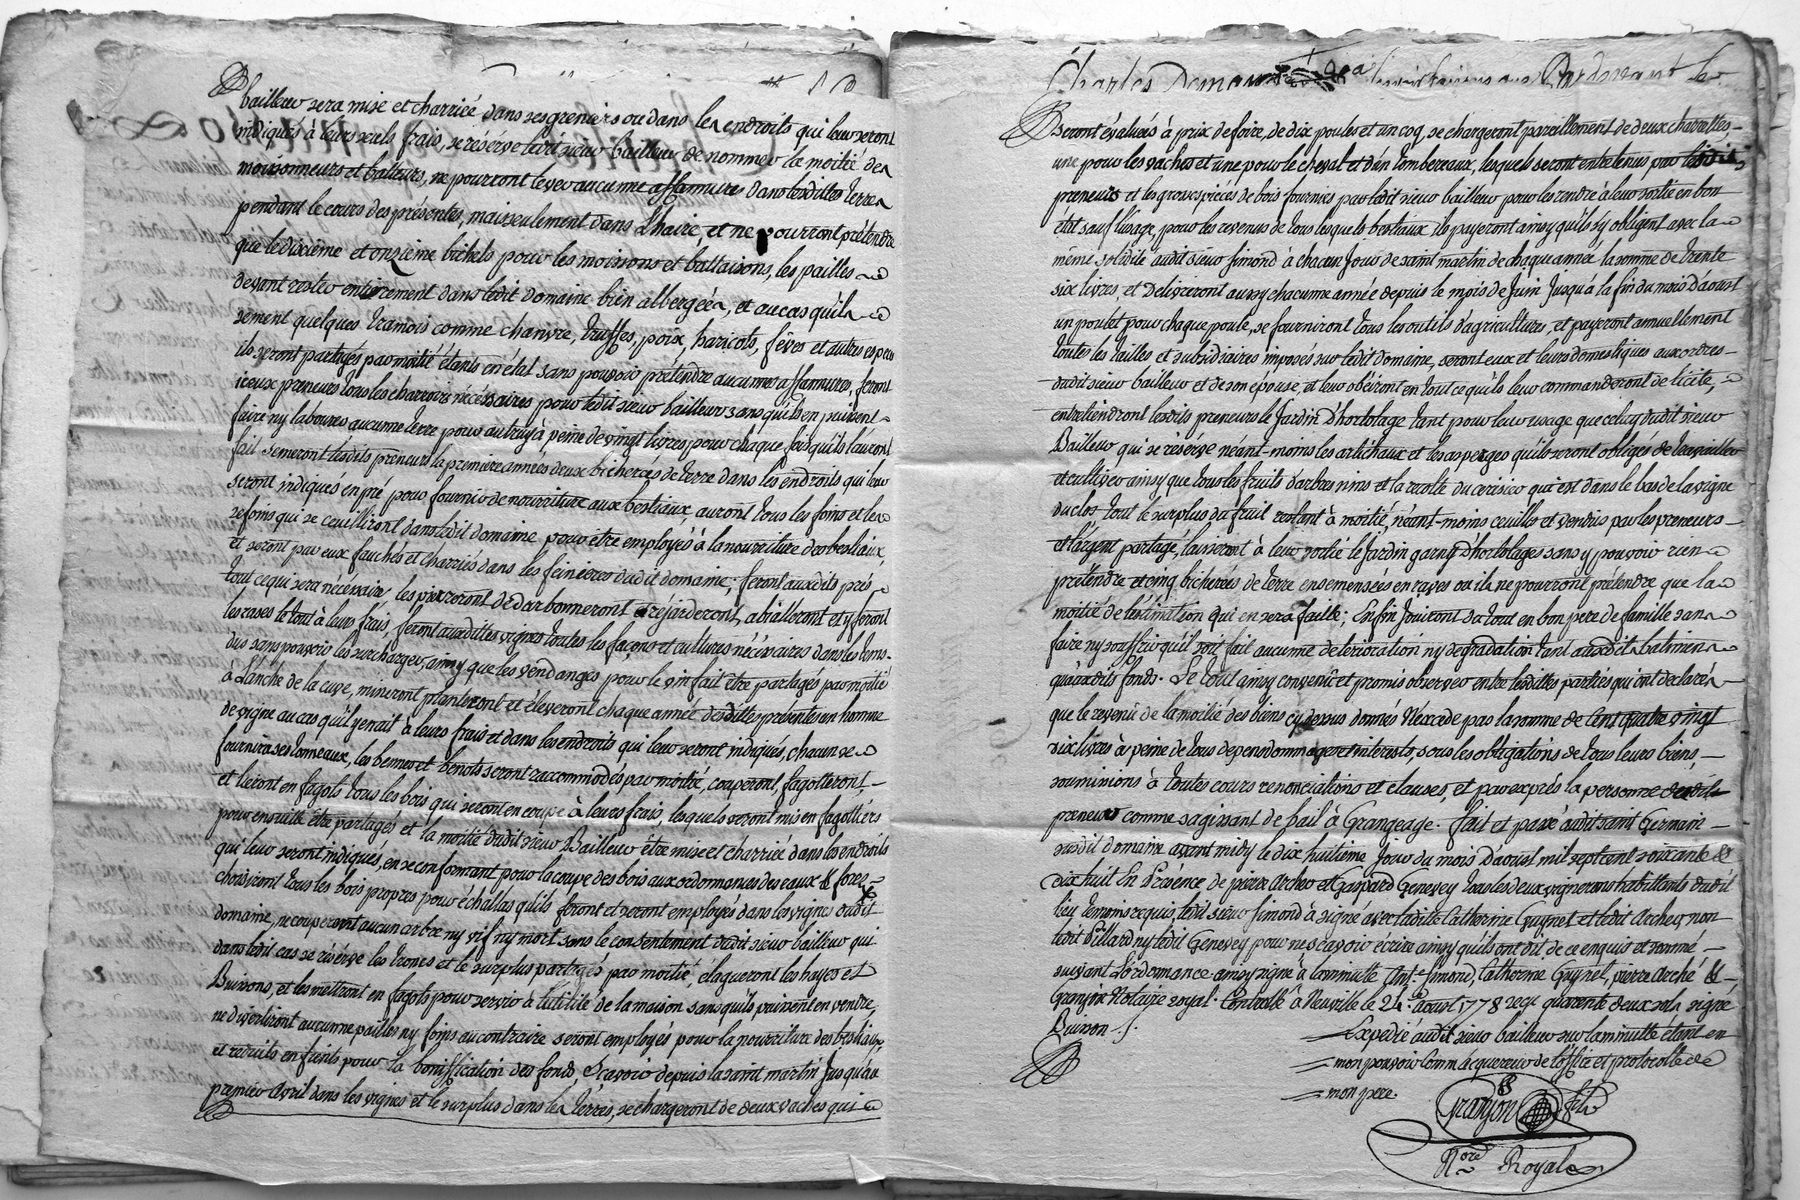 bailleur sera mise et charriée dans ses greniers ou dans les endroits qui leur seront
indiqués à leurs seuls frais, se réserve ledit sieur bailleur de nommer la moitié des
moissonneurs et batteurs, ne pourront lever aucunne affannure dans lesdittes terres
pendant le cours des présentes, mais seulement dans l'haire, et ne pourront prétendre
que le dixième et onzième bichets pour les moissons et battaisons, les pailles
devant rester entièrement dans ledit domaine bien albergées, et au cas qu'ils
sement quelques tramois comme chanvre, truffes, poix, haricots, fèves et autres especes
ils seront partagés par moitié étants en état sans pouvoir prétendre aucunnes affannures, feront
iceux preneurs tous les charrois nécéssaires pour ledit sieur bailleur sans qu'ils en puissent
faire ny labourer aucunne terre pour autruy à peine de vingt livres pour chaque fois qu'ils l'auront
fait, semeront lesdits preneurs la première année deux bicherées de terre dans les endroits qui leur
seront indiqués en pré pour fournir de nourriture aux bestiaux, auront tous les foins et les
refoins qui se ceuilliront dans ledit domaine pour être employés à la nourriture des bestiaux,
et seront par eux fauchés et charriés dans les feinières dudit domaine; feront auxdits prés
tout ce qui sera nécéssaire, les darbonneront abialleront et y feront
les rases le tout à leurs frais, feront auxdittes vignes toutes les façons et cultures nécéssaires dans les tems
dus sans pouvoir les surcharger, ainsy que les vendanges pour le vin fait être partagés par moitié
à l'anche de la cuve, mineront planteront et éleveront chaque année desdittes présentes un homme
de vigne au cas qu'il y en ait à leurs frais et dans les endroits qui leur seront indiqués, chacun se
fournira ses tonneaux, les bennes et benots seront raccommodés par moitié, couperont, fagotteront,
et lieront en fagots tous les bois qui seront en coupe à leurs frais, lesquels seront mis en fagottiers
pour ensuitte être partagés et la moitié dudit sieur Bailleur être mise et charriée dans les endroits
qui leur seront indiqués, en se conformant pour la coupe des bois aux ordonnances des eaux & forets
choisiront tous les bois propres pour échallas qu'ils feront et seront employés dans les vignes dudit
domaine, ne couperont aucun arbre ny vif ny mort sans le consentement dudit sieur bailleur qui
dans ledit cas se réserve les troncs et le surplus partagés par moitié, élagueront les hayes et
Buissons, et les mettront en fagots pour servir à l'utilité de la maison sans qu'ils puissent en vendre,
ne divertiront aucunne pailles ny foins au contraire seront employés pour la nourriture des bestiaux,
et réduits en fients pour la bonnification des fonds, sçavoir depuis la saint martin jusqu'au
premier avril dans les vignes et le surplus dans les terres, se chargeront de deux vaches qui
Charles
seront évaluées à prix de foire, de dix poules et un coq, se chargeront pareillement de deux charrettes,
une pour les vaches et une pour le cheval et d'un tombereaux, lesquels seront entretenus par lesdits
preneurs et les grosses pièces de bois fournies par ledit sieur bailleur pour les rendre à leur sortie en bon
état sauf l'usage, pour les revenus de tous lesquels bestiaux ils payeront ainsy qu'ils s'y obligent avec la
même solidité audit sieur simond à chacun jour de saint martin de chaque année la somme de trente
six livres, et Delivreront aussy chacunne année depuis le mois de Juin jusqu'à la fin du mois d'aoust
un poulet pour chaque poule, se fourniront tous les outils d'agricultures, et payeront annuellement
toutes les tailles et subsidiaires imposés sur ledit domaine, seront eux et leurs domestiques aux ordres
dudit sieur bailleur et de son épouse, et leur obéiront en tout ce qu'ils leur commanderont de licite,
entretiendront lesdits preneurs le Jardin d'hortolage tant pour leur usage que celuy dudit sieur
Bailleur qui se réserve néant-moins les artichaux et les asperges qu'ils seront obligés de travailler
et cultiver ainsy que tous les fruits d'arbres nins et la recolte du cerisier qui est dans le bas de la vigne
du clos tout le surplus du fruit restant à moitié, néant-moins ceuillis et vendus par les preneurs
et l'argent partagé, laisseront à leur sortie le Jardin garny d'hortolages sans y pouvoir rien
prétendre et cinq bicherées de terre ensemensées en raves ou ils ne pourront prétendre que la
moitié de l'estimation qui en sera faitte; Enfin Jouiront du tout en bon pere de famille sans
faire ny souffrir qu'il soit fait aucunne déterioration ny degradation tant auxdits batimens
qu'auxdits fonds. Le tout ainsy convenû et promis observer entre lesdittes parties qui ont declaré
que le revenû de la moitié des biens cy dessus donnés n'excede pas la somme de Cent quatre vingt
dix livres à peine de tous depens dommages et interests, sous les obligations de tous leurs biens,
soumissions à toutes cours renonciations et clauses, et par exprès la personne desdits
preneurs comme s'agissant de bail à Grangeage. fait et passé audit saint Germain
susdit domaine avant midy le dix huitième Jour du mois D'aoust mil sept cent soixante &
dix huit En Présence de pierre Archer et Gaspard Genevey tous les deux vignerons habittants dudit
lieu témoins requis, ledit sieur Simond à signé avec laditte Catherine Guynet et ledit Archer, non
ledit Pillard ny ledit Genevey pour ne sçavoir écrire ainsy qu'ils ont dit de ce enquis et sommé
suivant L'ordonnance ainsy signé à la minutte Ant.e Simond, Catherine Guynet, pierre Arché &
Granjon Notaire royal. Controllé à Neuville le 24. aoust 1778 reçu quarente deux sols signé
Buisson ./.
Expedié audit sieur bailleur sur la minutte étant en
mon pouvoir comm'acquereur de l'office et protocolle de
mon pere.
Granjon fils
N.ore Royal